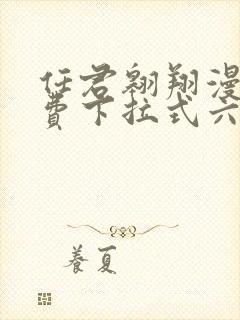 任君翱翔漫
費下拉式六
養夏